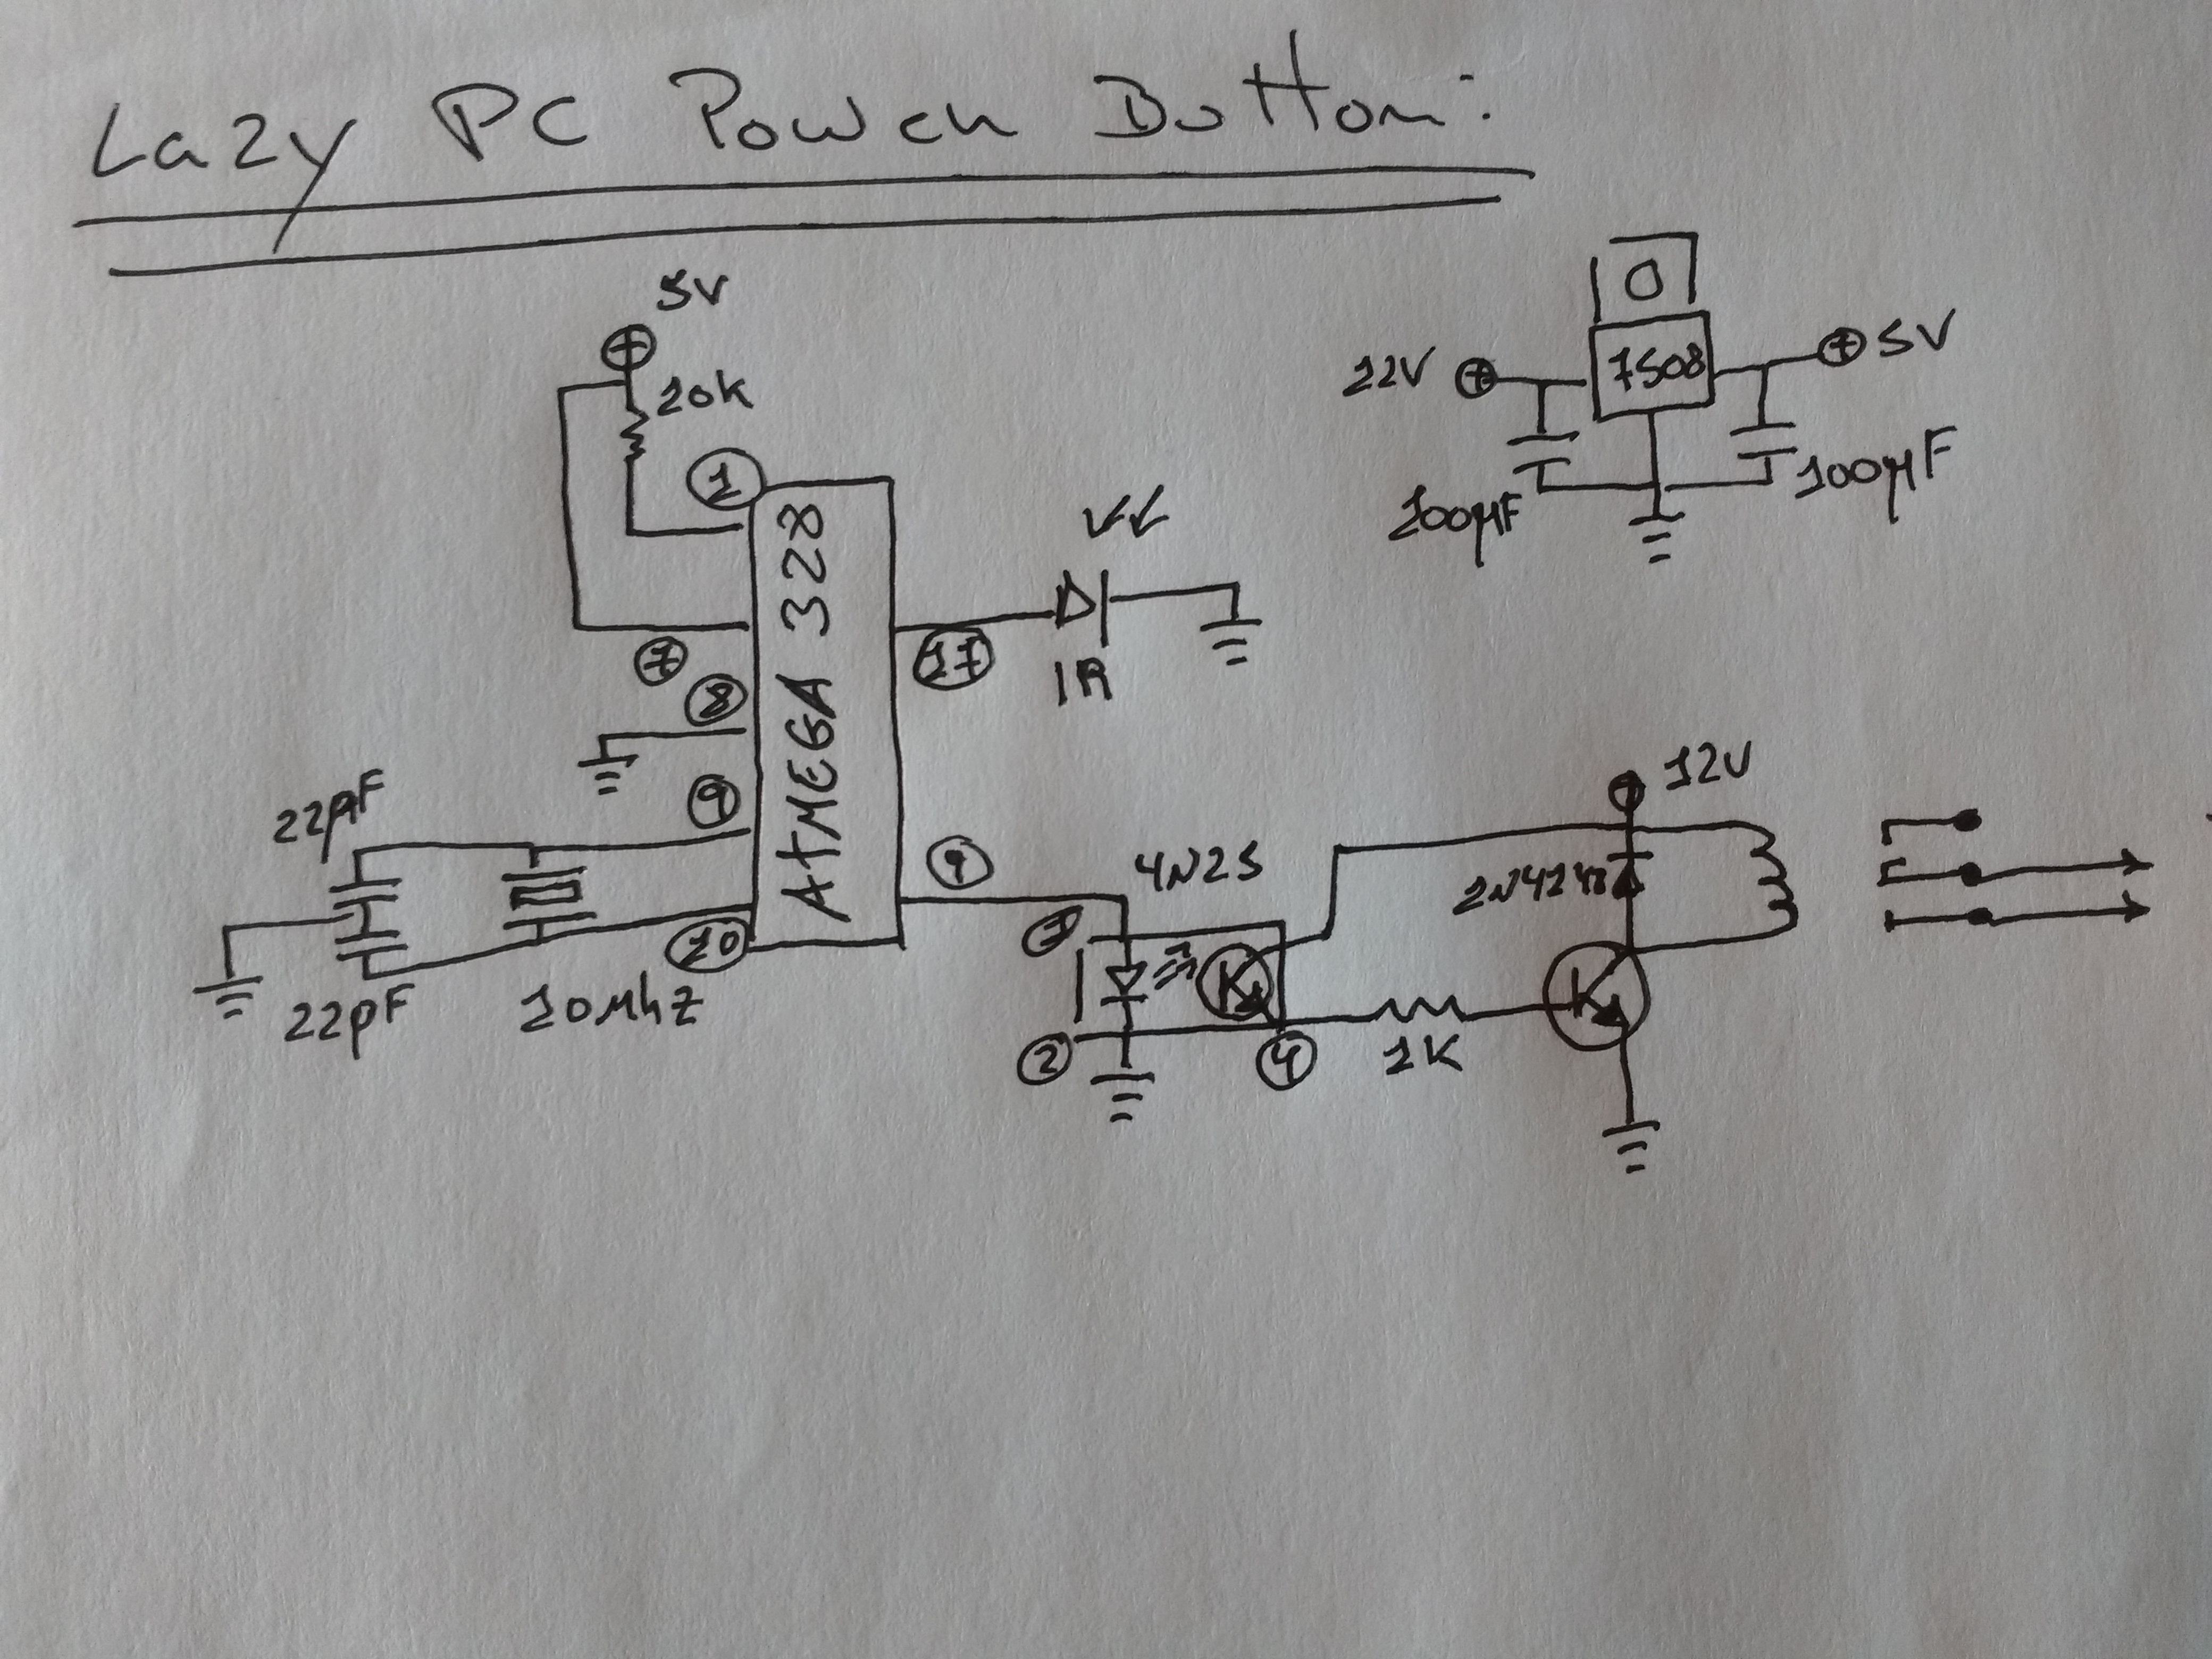 Lazy PC Power Button:
5V
10K
1
7
8
9
10
ATMEGA 328
17
IR
22pF
22pF
10Mhz
12V
7508
5V
100µF
100µF
9
4N25
1
2
4
1K
1N4148
12V